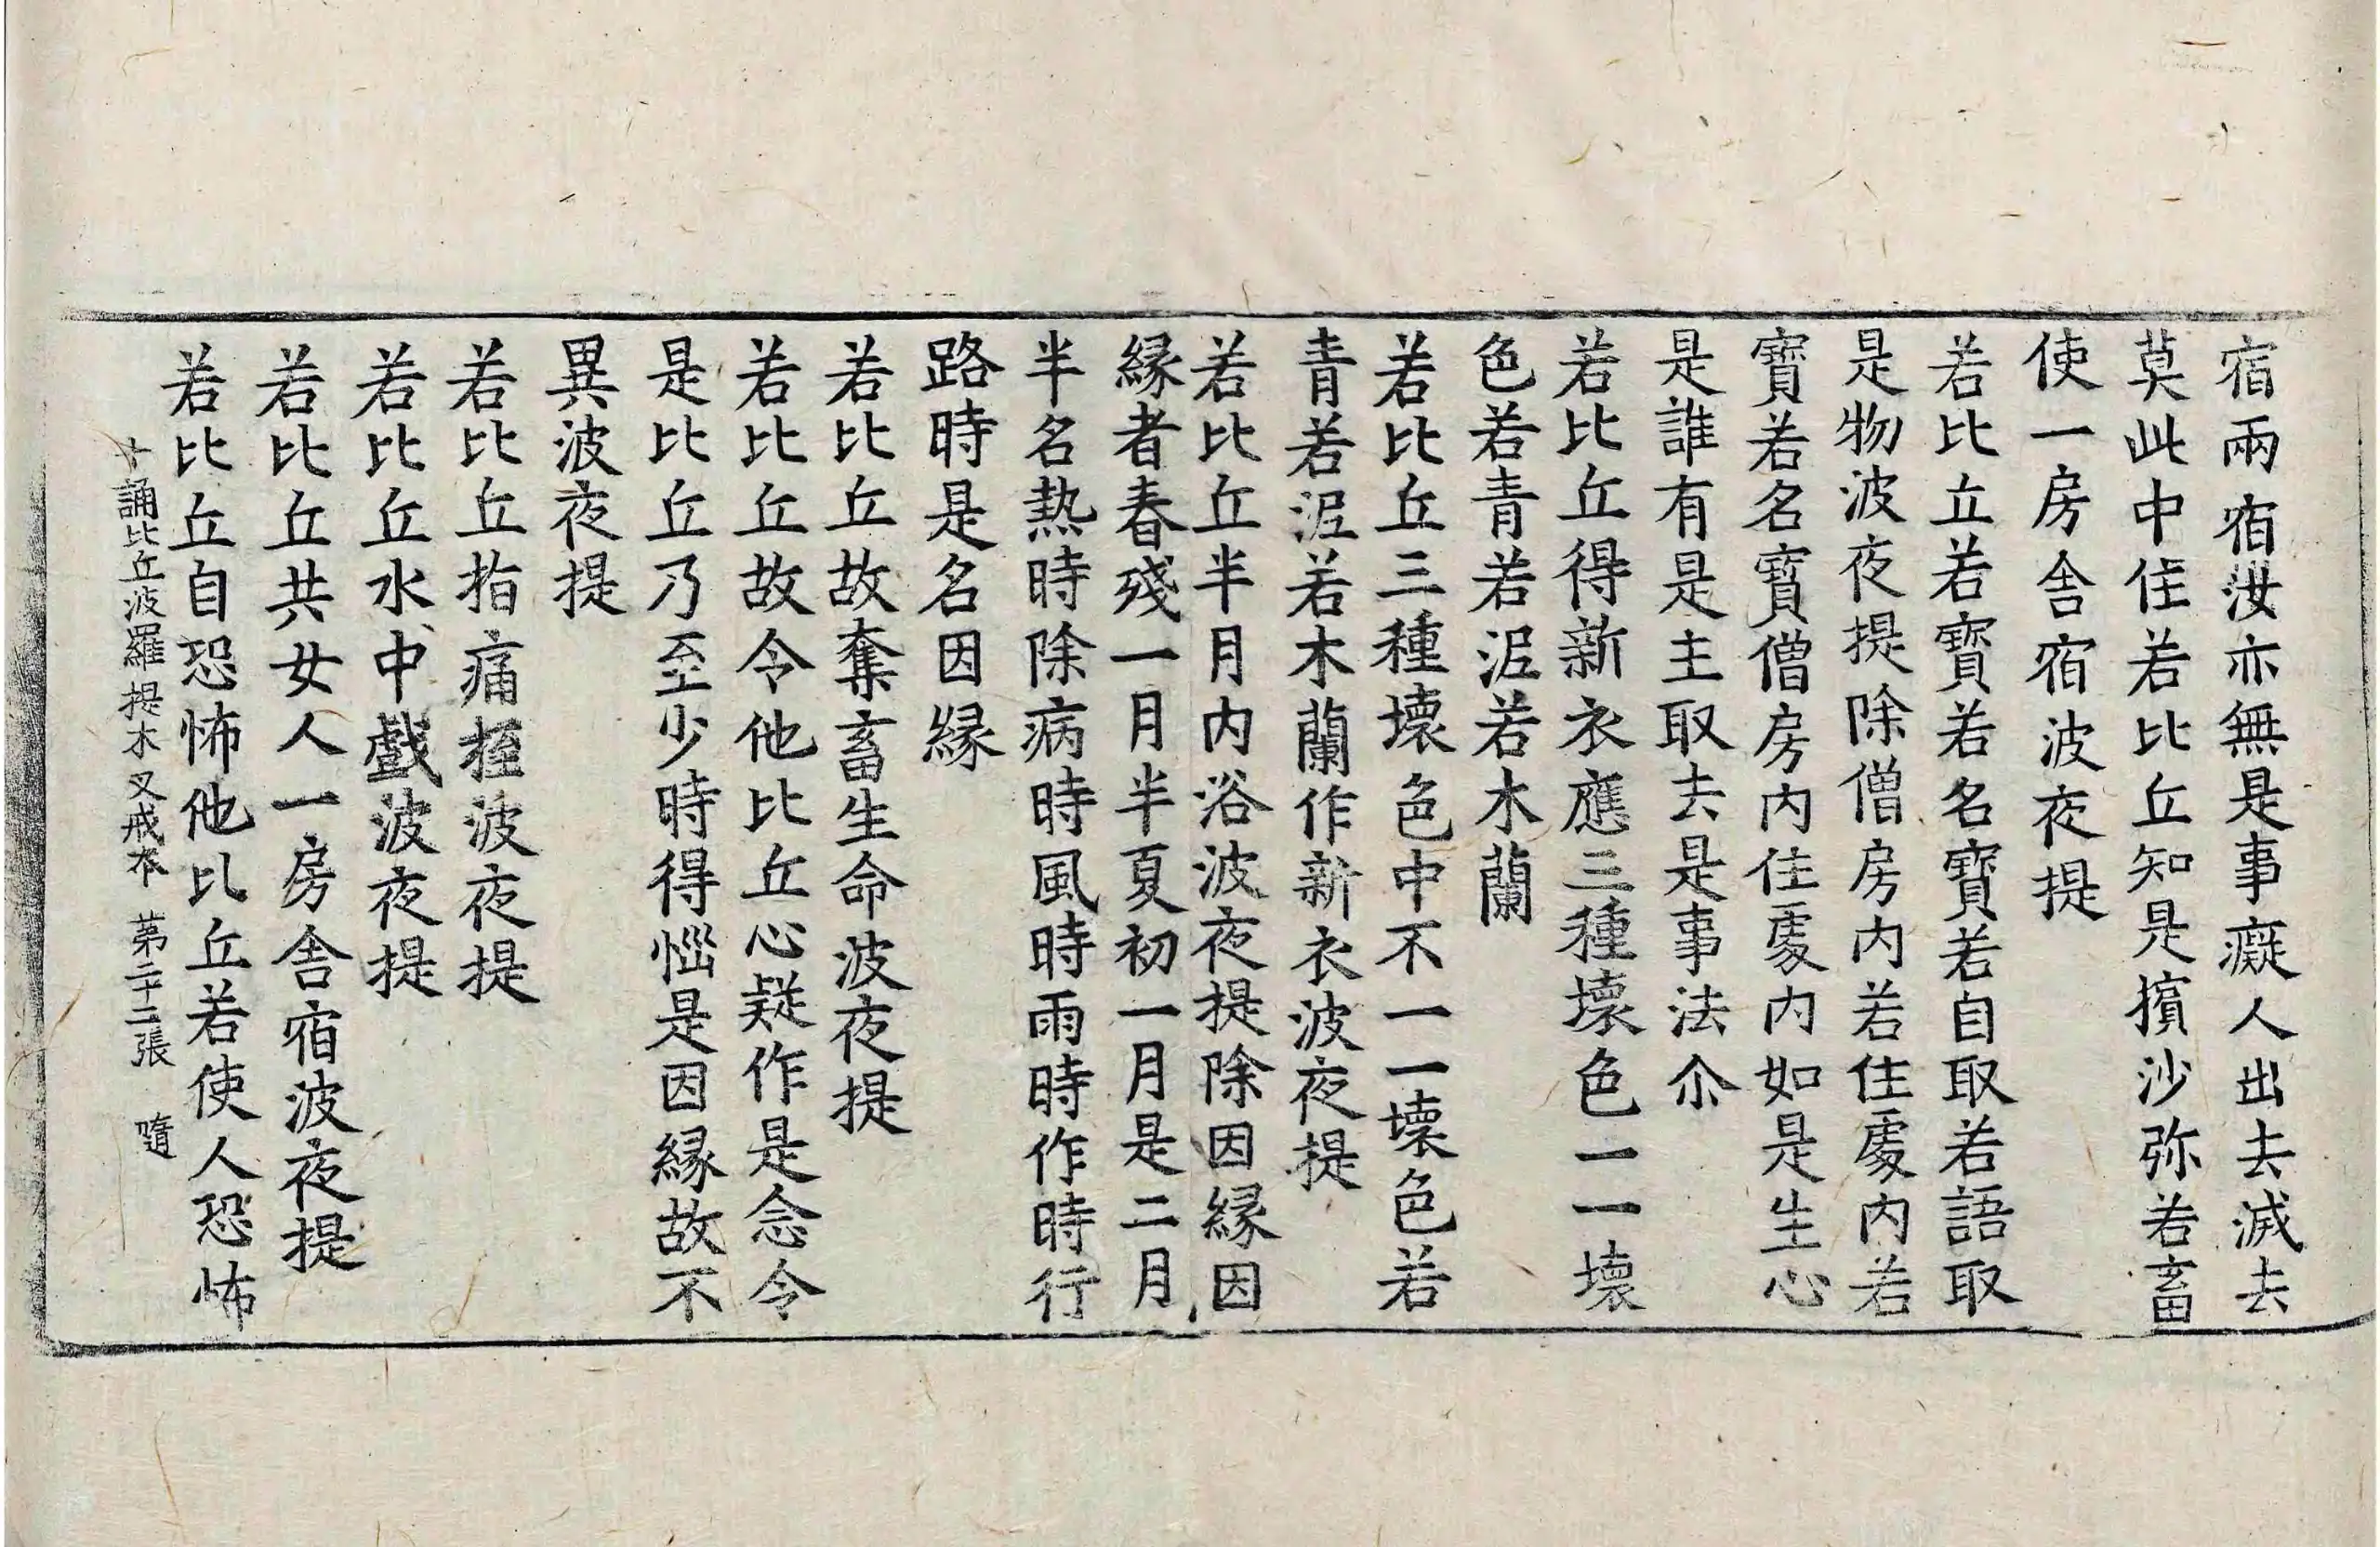 宿兩宿汝亦無是事癡人出去滅去
莫此中住若比丘知是擯沙弥若畜
使一房舍宿波夜提
若比丘若寶若名寶若自取若語取
是物波夜提除僧房內若住處內若
寶若名寶僧房內住處內如是生心
是誰有是主取去是事法尒
若比丘得新衣應三種壞色一一壞
色若青若泥若木蘭
若比丘三種壞色中不一一壞色若
青若泥若木蘭作新衣波夜提
若比丘半月內浴波夜提除因緣因
緣者春殘一月半夏初一月是二月
半名熱時除病時風時雨時作時行
路時是名因緣
若比丘故奪畜生命波夜提
若比丘故令他比丘心疑作是念令
是比丘乃至少時得惱是因緣故不
異波夜提
若比丘指痛挃波夜提
若比丘水中戲波夜提
若比丘共女人一房舍宿波夜提
若比丘自恐怖他比丘若使人恐怖
十誦比丘波羅提木叉戒本 苐二十二張 隨